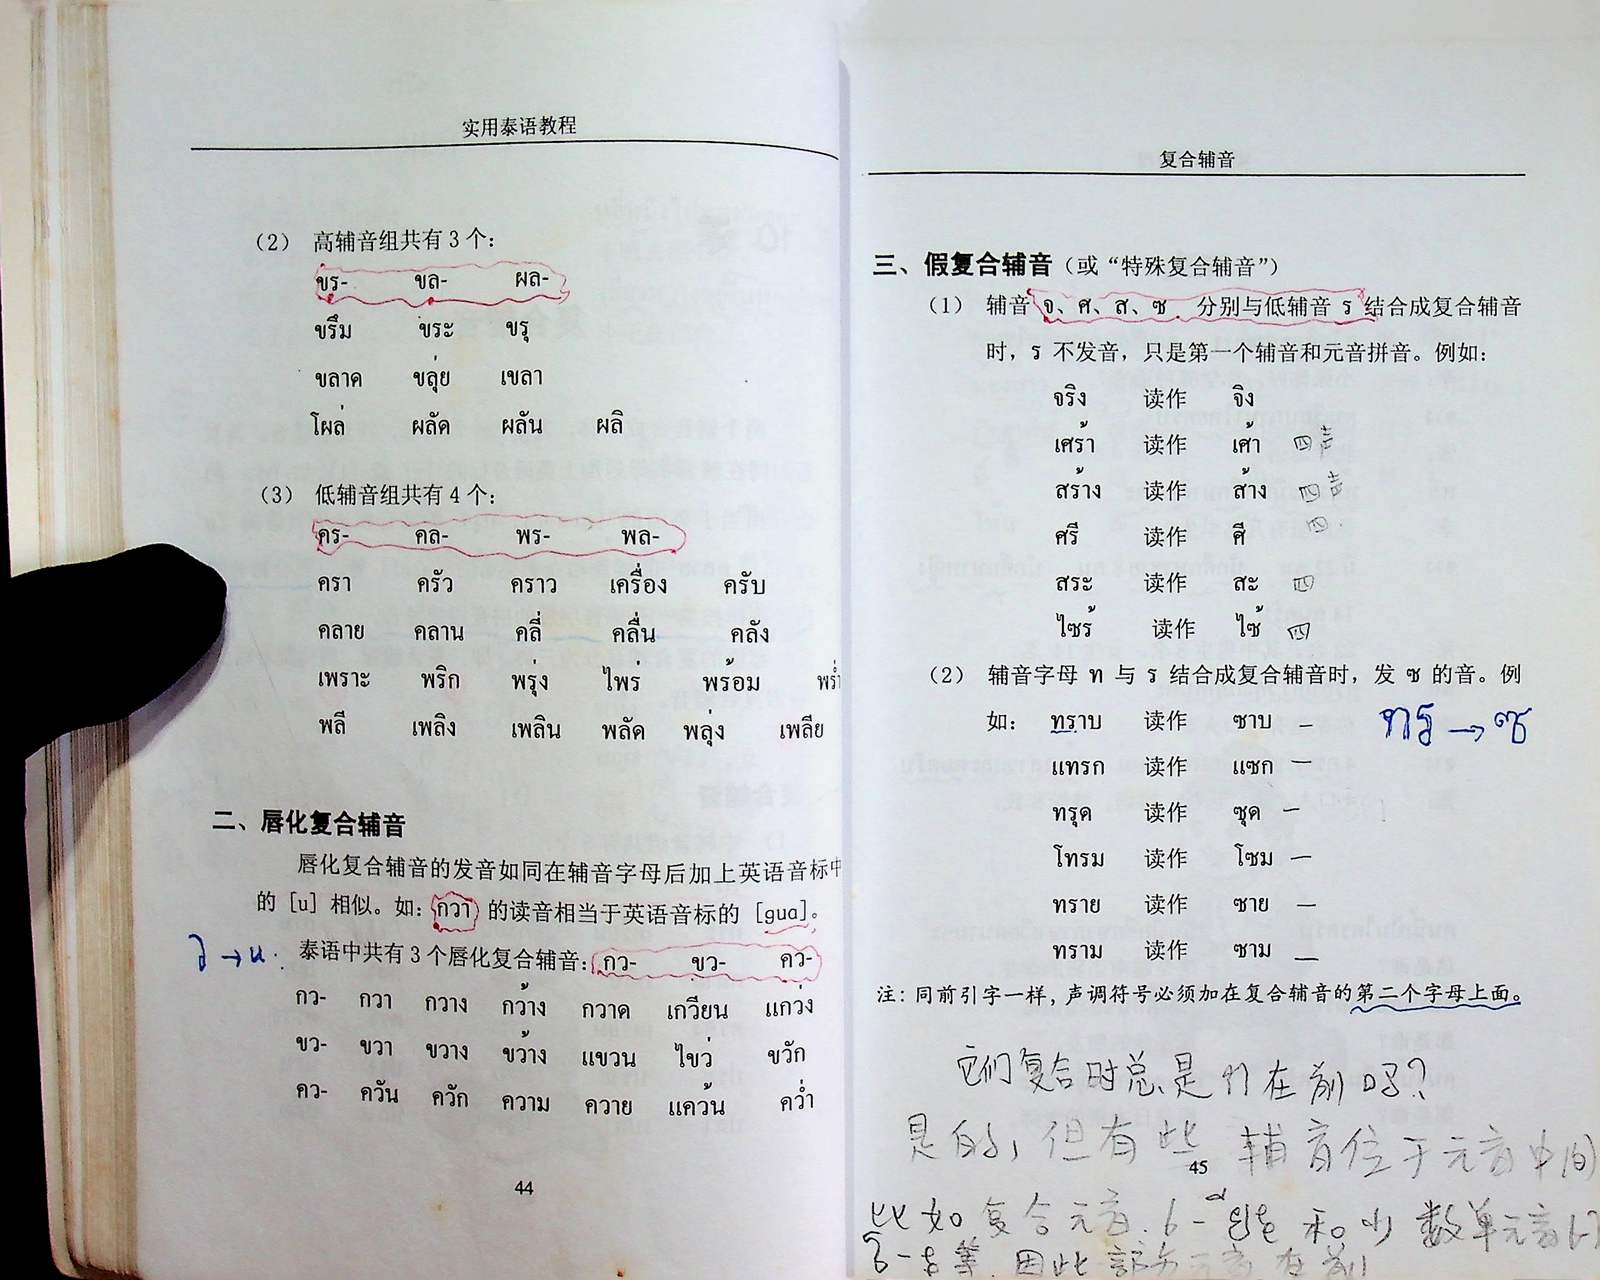 实用泰语教程
（2） 高辅音组共有3个：
ขร- ขล- ผล-
ขรึม ขระ ขรุ
ขลาด ขลุ่ย เขลา
โผล่ ผลัด ผลัน ผลิ
（3） 低辅音组共有4个：
คร- คล- พร- พล-
ครา ครัว คราว เครื่อง ครับ
คลาย คลาน คลี่ คลื่น คลัง
เพราะ พริก พรุ่ง ไพร่ พร้อม
พลี เพลิง เพลิน พลัด พลุ่ง เพลีย
二、唇化复合辅音
唇化复合辅音的发音如同在辅音字母后加上英语音标中
的［u］相似。如：กวา 的读音相当于英语音标的［gua］。
ว→u. 泰语中共有3个唇化复合辅音：กว- ขว- คว-
กว- กวา กวาง กว้าง กวาด เกวียน แกว่ง
ขว- ขวา ขวาง ขว้าง แขวน ไขว่ ขวัก
คว- ควัน ควัก ความ ควาย แคว้น คว่ำ
44
复合辅音
三、假复合辅音（或“特殊复合辅音”）
（1） 辅音 จ、ศ、ส、ซ 分别与低辅音 ร 结合成复合辅音
时，ร 不发音，只是第一个辅音和元音拼音。例如：
จริง 读作 จิง
เศร้า 读作 เศ้า 四声
สร้าง 读作 ส้าง 四声
ศรี 读作 ศี 四.
สระ 读作 สะ 四
ไซร้ 读作 ไซ้ 四
（2） 辅音字母 ท 与 ร 结合成复合辅音时，发 ซ 的音。例
如： ทราบ 读作 ซาบ — ทร→ซ
แทรก 读作 แซก —
ทรุด 读作 ซุด —
โทรม 读作 โซม —
ทราย 读作 ซาย —
ทราม 读作 ซาม —
注：同前引字一样，声调符号必须加在复合辅音的第二个字母上面。
它们复合时总是 在前吗？
是的，但有些 辅音位于元音中间
45
比如 复合元音 和少数单元音
等. 因此 在前